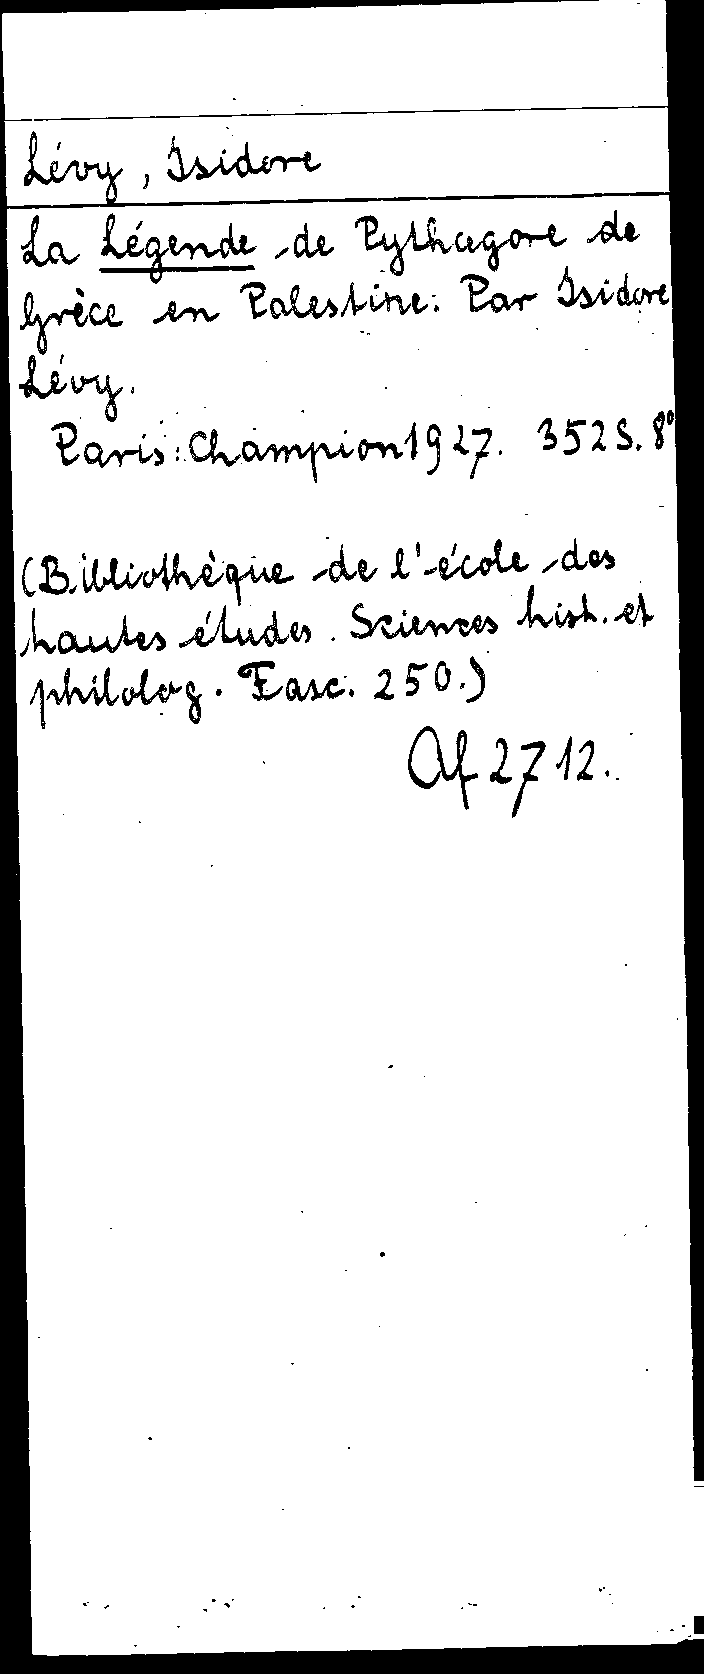 Lévy, Isidore
La Légende de Pythagore de
Grèce en Palestine. Par Isidore
Lévy.
Paris: Champion 1927. 352 S. 8°
(Bibliothèque de l'école des
hautes études. Sciences hist. et
philolog. Fasc. 250.)
Af 2712.